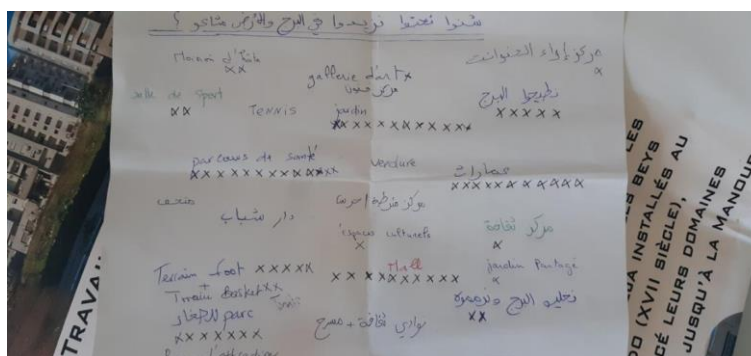 شنوا تحبوا نريدوا في البرج والأرض متاعو ؟
Maison d'hôte
xx
gallerie d'art x
مركز فنون
مركز إيواء الحيوانات
x
salle de sport
xx
TENNIS
jardin
xxxxxxxxxxx
نطيحوا البرج
xxxxx
parcours de santé
xxxxxxxxxxxx
verdure
عمارات
xxxxxxxxxxx
متحف
دار شباب
مركز شرطة / حرس
espaces culturels
x
مركز ثقافة
x
Terrain foot xxxxx
+
Terrain Basket xx
Tennis
Mall
xxxxxxxxxx
jardin Partagé
x
parc للصغار
xxxxxx
نوادي ثقافة + مسرح
نخليو البرج ونرمموه
xx
TRAVA
LES
S BEYS
JA INSTALLÉS AU
DO (XVII SIÈCLE),
CÉ LEURS DOMAINES
JUSQU'À LA MANOUB